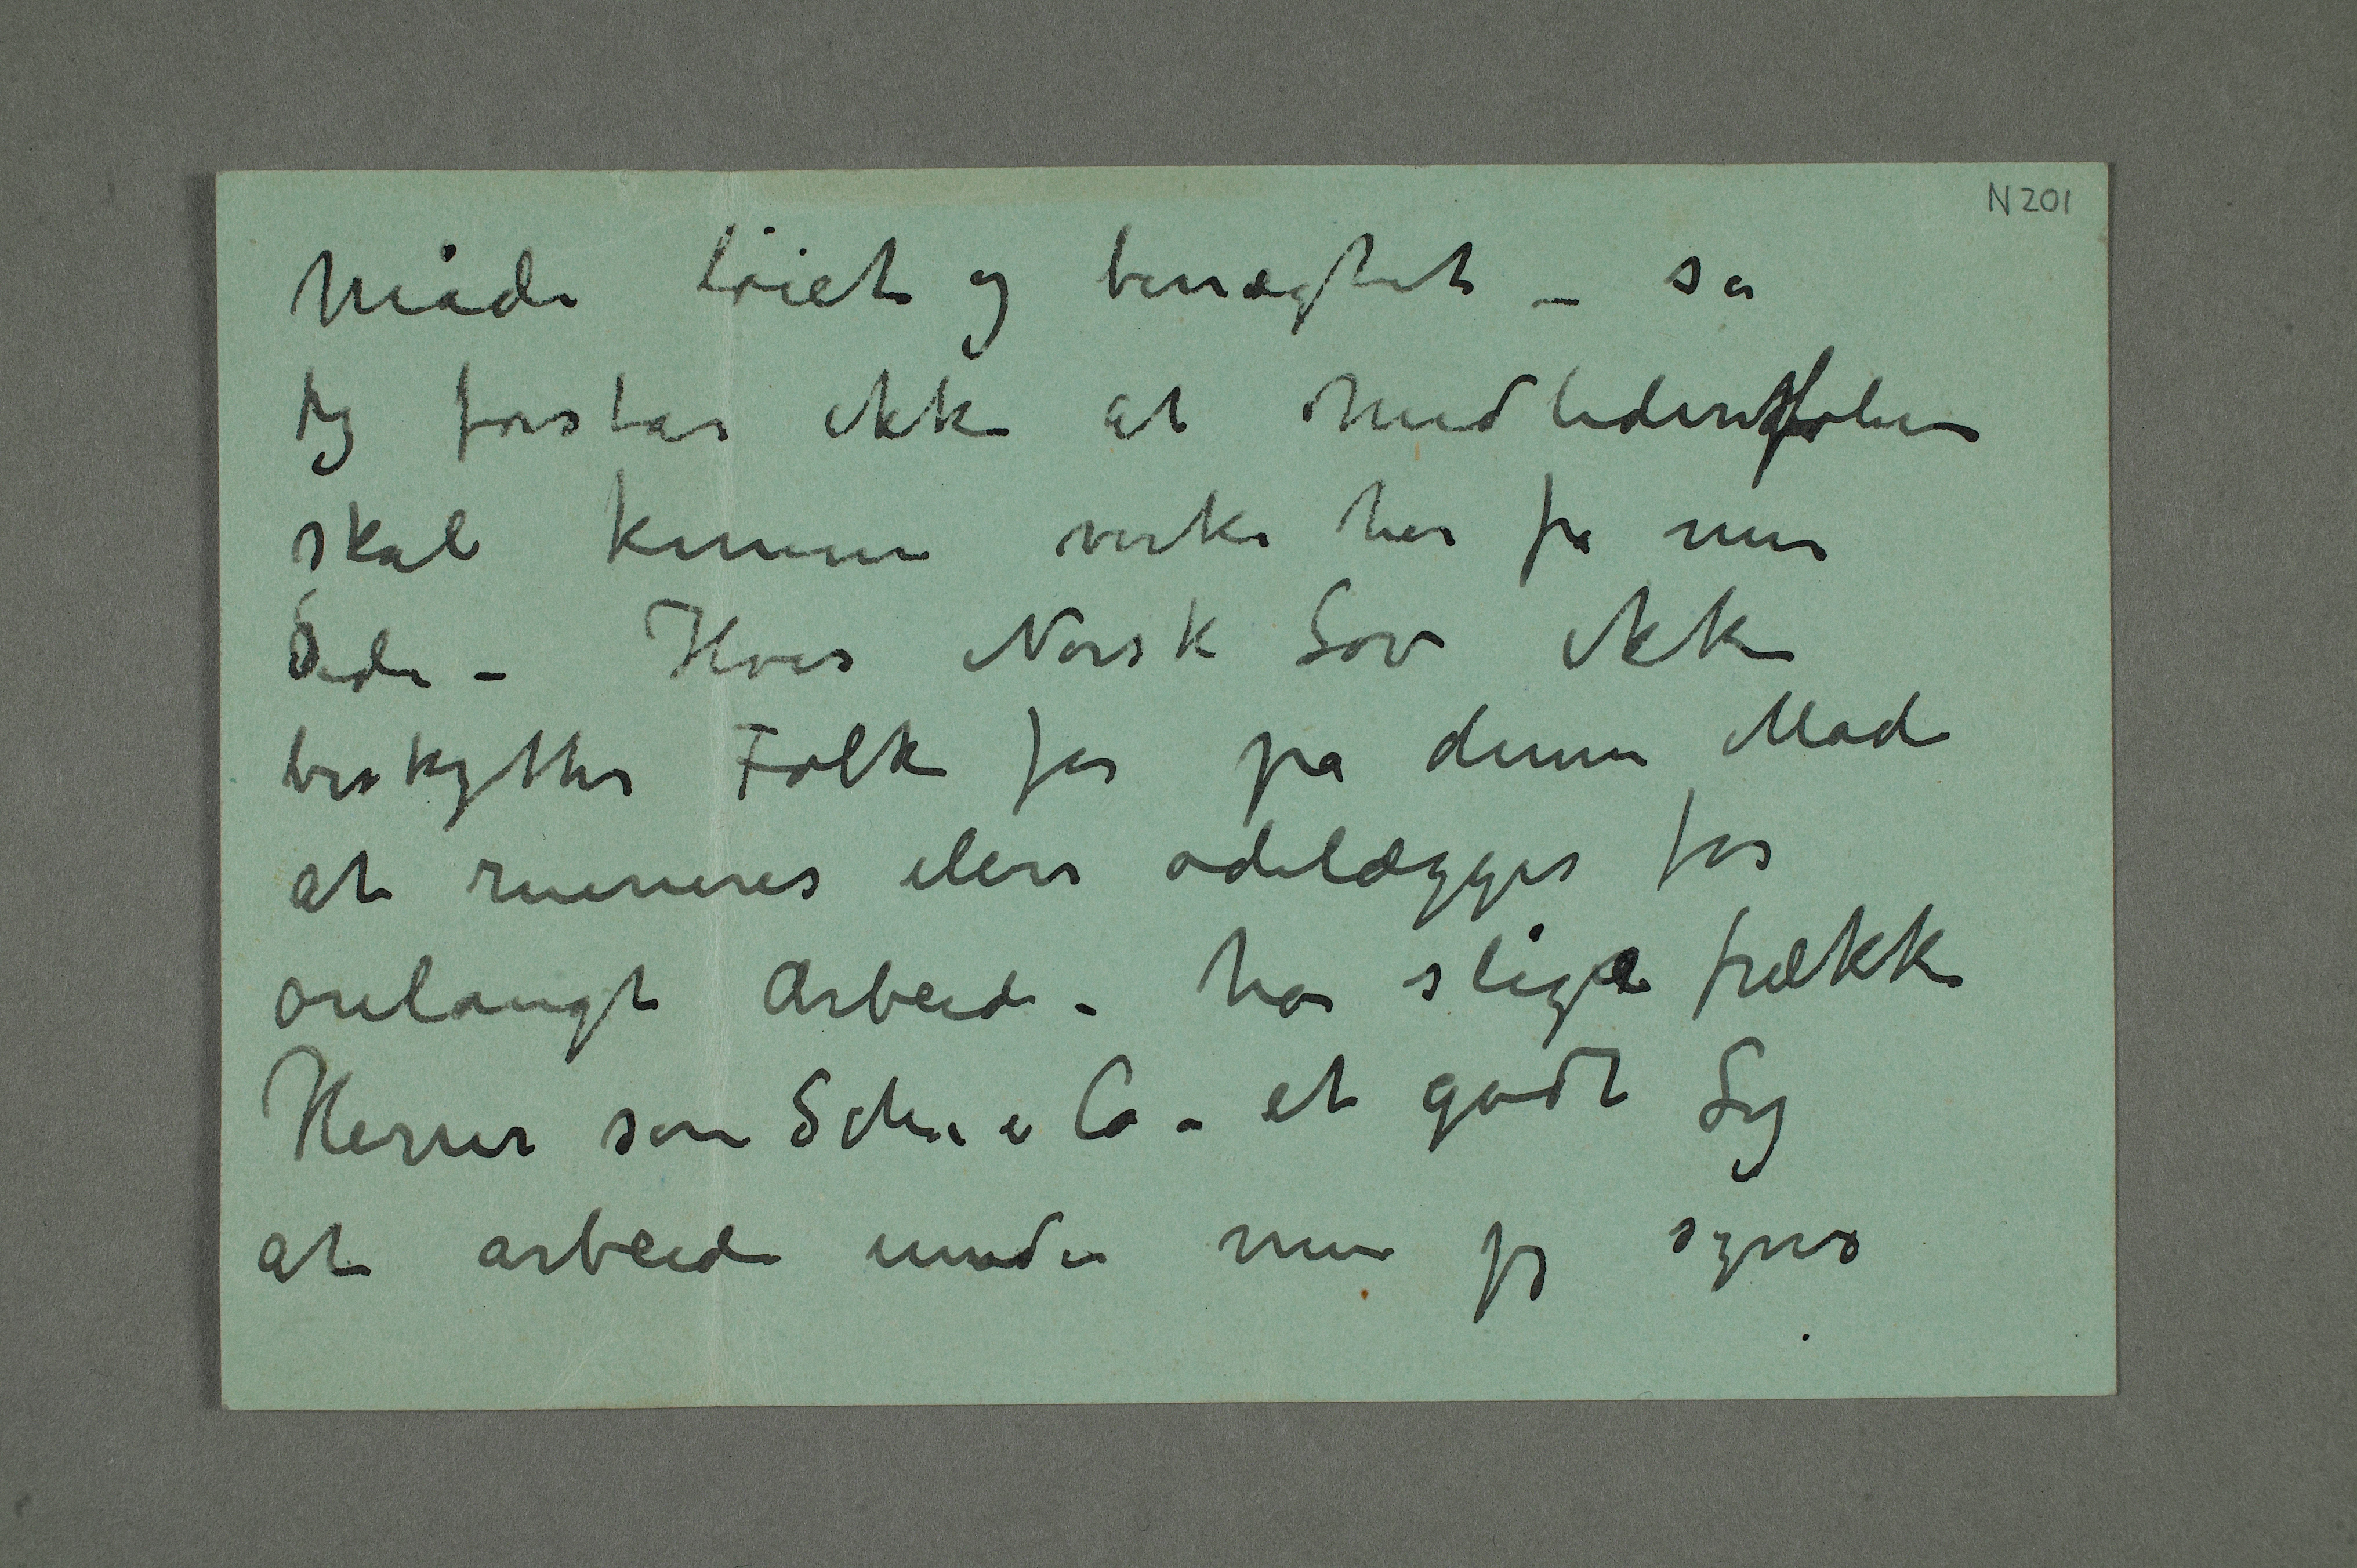 N 201
Måde løiet og benægtet – så
jeg forstår ikke at Medlidenhedsfølelsen
skal kunne virke her fra min
Side – Hvis Norsk Lov ikke
beskytter Folk for på denne Måde
at ruineres eller ødelægges for
årelangt Arbeide – har slige frække
Herrer som Sch. & Co – et godt Ly
at arbeide under men jeg synes